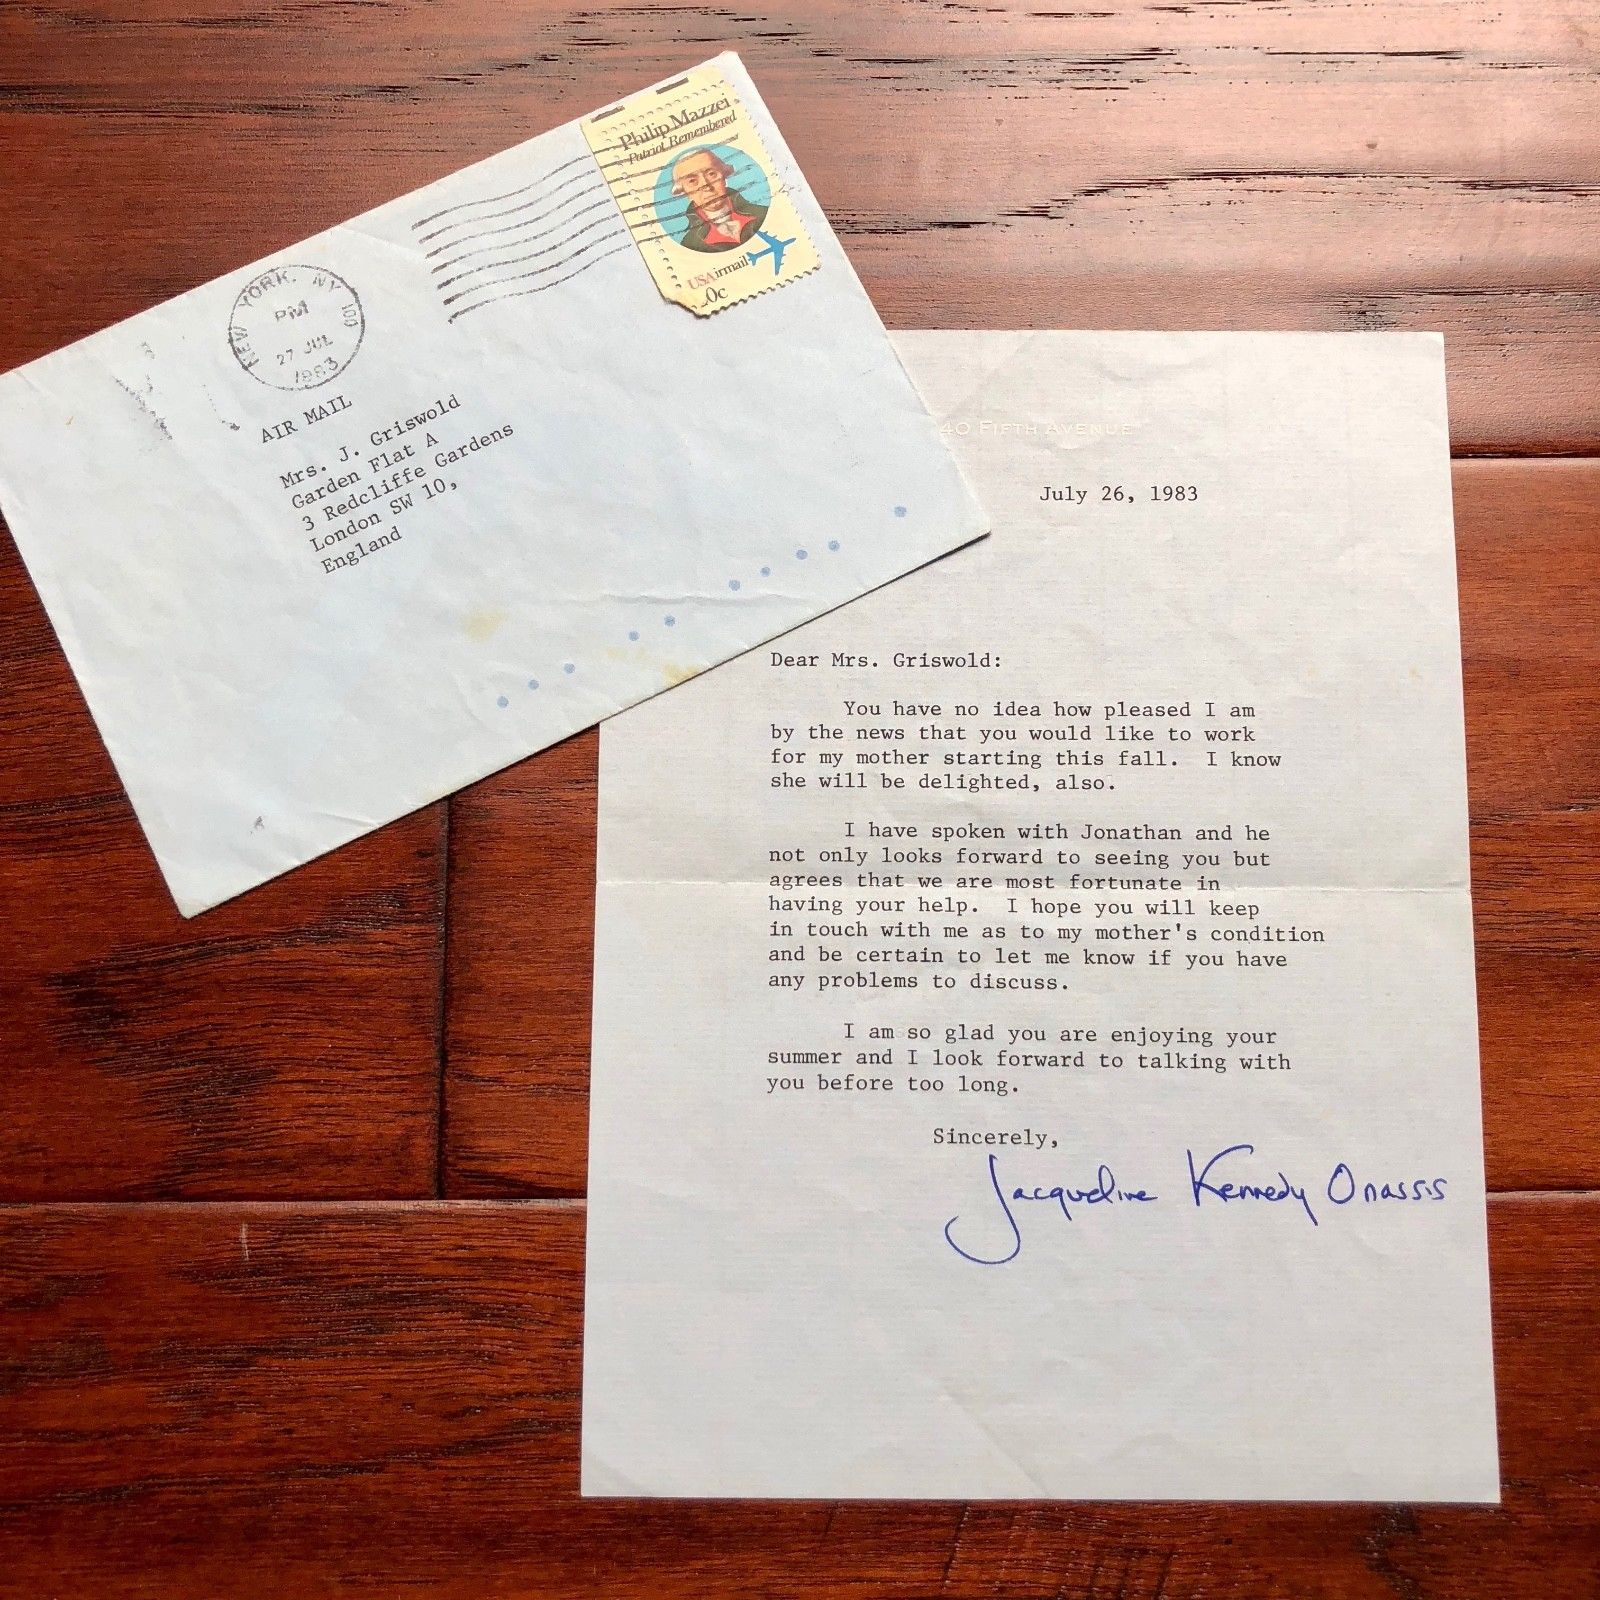 Philip Mazzei
Patriot Remembered
USAirmail
0c
NEW YORK, NY 100
PM
27 JUL
1983
AIR MAIL
Mrs. J. Griswold
Garden Flat A
3 Redcliffe Gardens
London SW 10,
England
40 FIFTH AVENUE
July 26, 1983
Dear Mrs. Griswold:
You have no idea how pleased I am
by the news that you would like to work
for my mother starting this fall. I know
she will be delighted, also.
I have spoken with Jonathan and he
not only looks forward to seeing you but
agrees that we are most fortunate in
having your help. I hope you will keep
in touch with me as to my mother's condition
and be certain to let me know if you have
any problems to discuss.
I am so glad you are enjoying your
summer and I look forward to talking with
you before too long.
Sincerely,
Jacqueline Kennedy Onassis